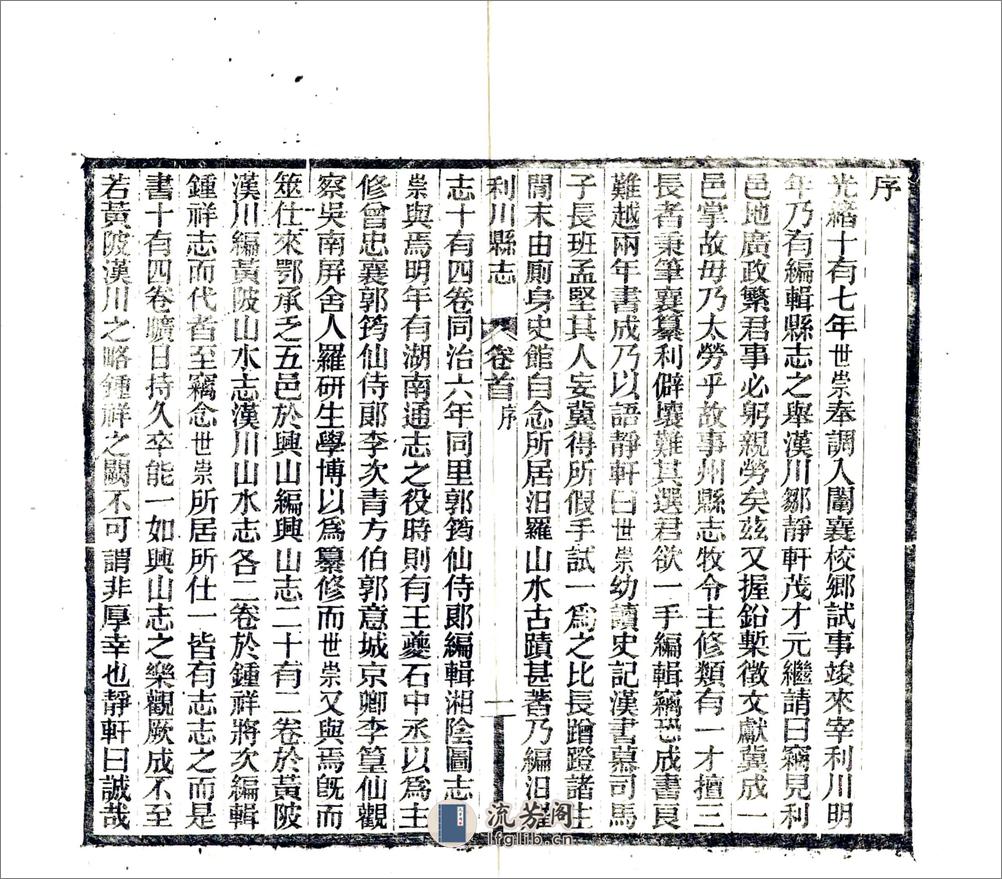 序
光緒十有七年世崇奉調入闈襄校鄉試事竣來宰利川明
年乃有編輯縣志之舉漢川鄒靜軒茂才元繼請曰竊見利
邑地廣政繁君事必躬親勞矣茲又握鉛槧徵文獻冀成一
邑掌故毋乃太勞乎故事州縣志牧令主修類有一才擅三
長者秉筆襄纂利僻壤難其選君欲一手編輯竊恐成書良
難越兩年書成乃以語靜軒曰世崇幼讀史記漢書慕司馬
子長班孟堅其人妄冀得所假手試一爲之比長蹭蹬諸生
閒末由廁身史館自念所居汨羅山水古蹟甚著乃編汨羅
利川縣志
卷首
序
一
志十有四卷同治六年同里郭筠仙侍郎編輯湘陰圖志世
崇與焉明年有湖南通志之役時則有王夔石中丞以爲主
修曾忠襄郭筠仙侍郎李次青方伯郭意城京卿李篁仙觀
察吳南屏舍人羅研生學博以爲纂修而世崇又與焉旣而
筮仕來鄂承乏五邑於興山編興山志二十有二卷於黃陂
漢川編黃陂山水志漢川山水志各二卷於鍾祥將次編輯
鍾祥志而代者至竊念世崇所居所仕一皆有志志之而是
書十有四卷曠日持久卒能一如興山志之樂觀厥成不至
若黃陂漢川之略鍾祥之闕不可謂非厚幸也靜軒曰誠哉
流芳閣
lfglib.cn